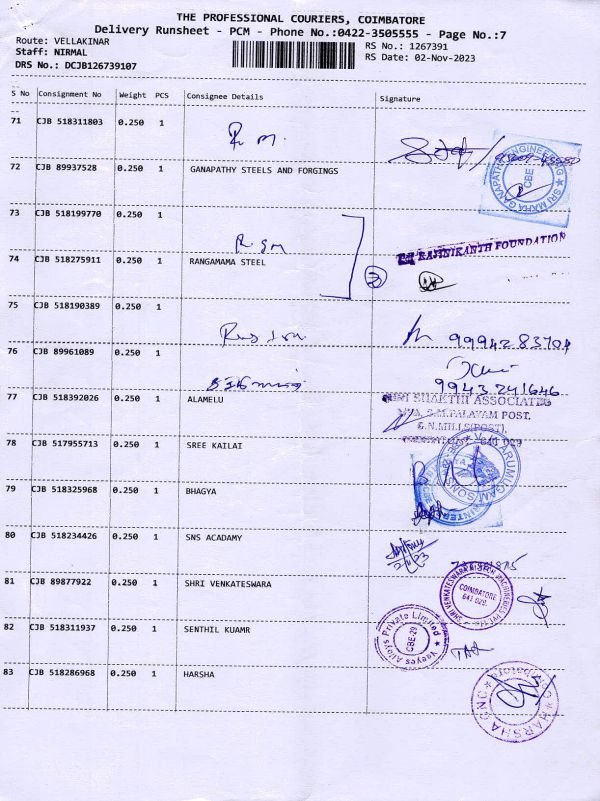 THE PROFESSIONAL COURIERS, COIMBATORE
Delivery Runsheet - PCM - Phone No.:0422-3505555 - Page No.:7
Route: VELLAKINAR
RS No.: 1267391
Staff: NIRMAL
RS Date: 02-Nov-2023
DRS No.: DCJB126739107
S No Consignment No Weight PCS Consignee Details Signature
71 CJB 518311803 0.250 1
72 CJB 89937528 0.250 1 GANAPATHY STEELS AND FORGINGS
SRI MAHA GANAPATHI ENGINEERING
CBE
73 CJB 518199770 0.250 1
RAJINIKANTH FOUNDATION
74 CJB 518275911 0.250 1 RANGAMAMA STEEL
75 CJB 518190389 0.250 1
99942 83704
76 CJB 89961089 0.250 1
9943 241646
77 CJB 518392026 0.250 1 ALAMELU
SHAKTHI ASSOCIATES
S.M.PALAYAM POST,
G.N.MILLS(POST),
641 029
78 CJB 517955713 0.250 1 SREE KAILAI
79 CJB 518325968 0.250 1 BHAGYA
80 CJB 518234426 0.250 1 SNS ACADAMY
81 CJB 89877922 0.250 1 SHRI VENKATESWARA
COIMBATORE
641 029.
82 CJB 518311937 0.250 1 SENTHIL KUAMR
Yeeyes Alloys Private Limited
CBE-29
83 CJB 518286968 0.250 1 HARSHA
HARSHA CNC